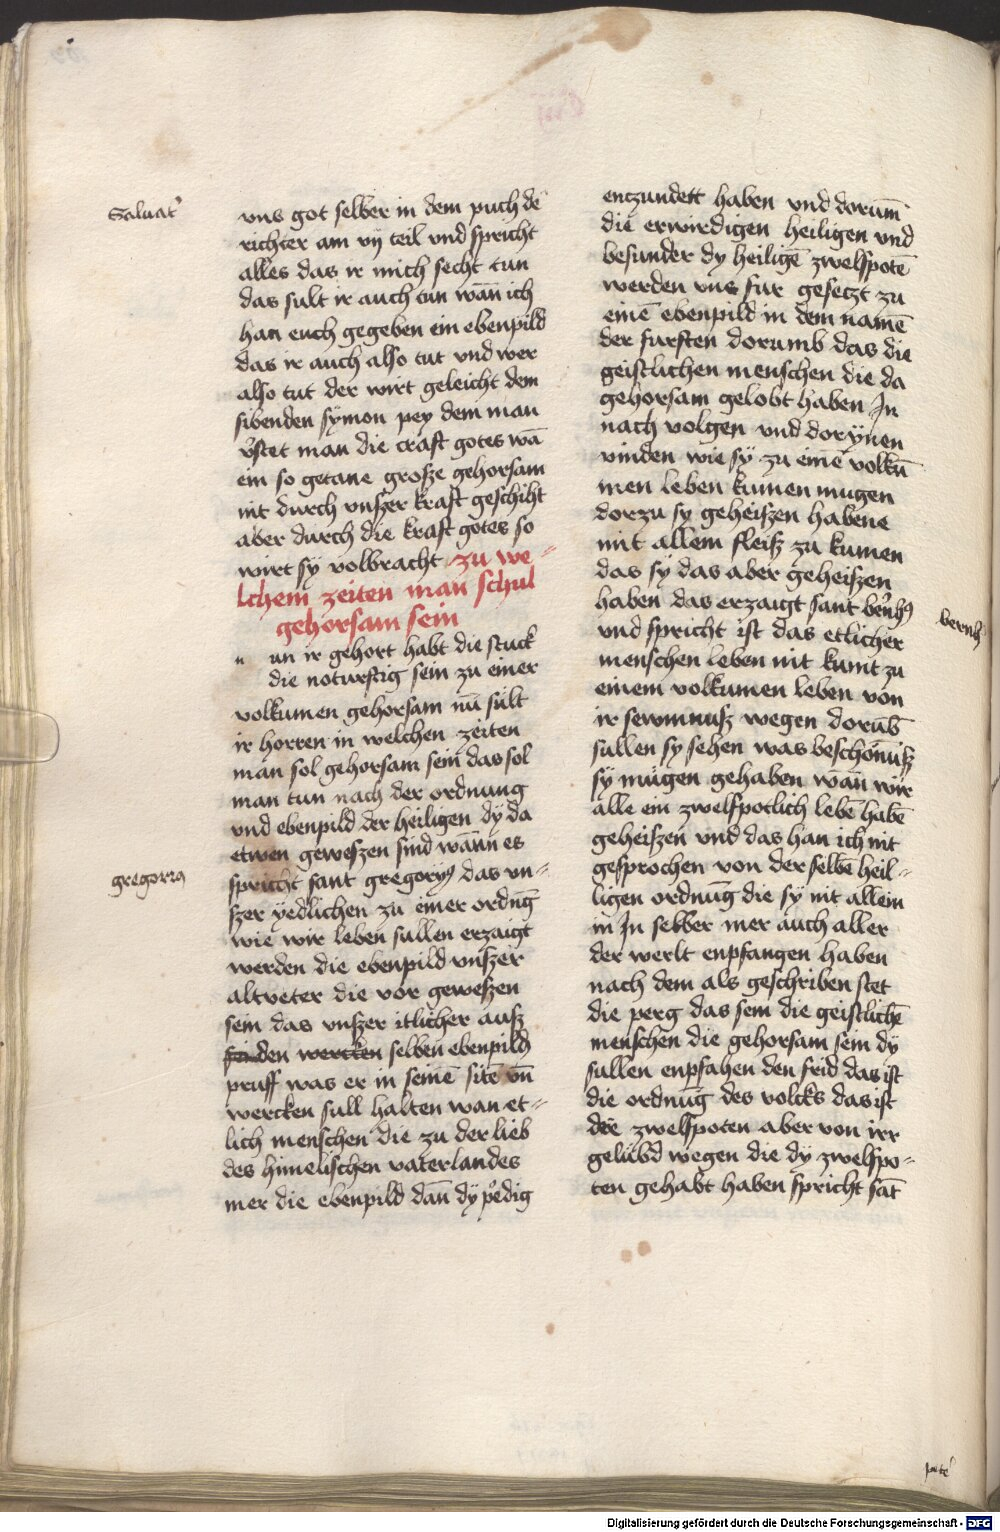 Saluatꝰ
vns got selber in dem puch dē
richter am vij teil vnd spricht
alles das ir mich secht tun
das sult ir auch tun wañ ich
han euch gegeben ein ebenpild
das ir auch also tut vnd wer
also tut der wirt geleicht dem
sibenden symon pey dem man
vstet man die craft gotes wā
ein so getane grosze gehorsam
nit durch vnszer kraft geschiht
aber durch die kraft gotes so
wirt sy volbracht zu we-
lchem zeiten man schul
gehorsam sein
n un ir gehort habt die stuck
die noturftig sein zu einer
volkumen gehorsam nū sült
ir horren in welchen zeiten
man sol gehorsam sein das sol
man tun nach der ordnung
vnd ebenpild der heiligen dÿ da
etwen geweszen sind wānn es
gregoriꝰ
spricht sant gregoryꝰ das vn-
szer yedlichen zu einer ordnūg
wie wir leben sullen erzaigt
werden die ebenpild vnszer
altveter die vor geweszen
sein das vnszer itlicher ausz
den wercken selben ebenpild
pruff was er in seinē sitē vn̄
wercken sull halten wan et-
lich menschen die zu der lieb
des himelischen vaterlandes
mer die ebenpild dañ dÿ p̊edig
enczundett haben vnd dorum̄
die erwirdigen heiligen vnd
besunder dy heiligē zwelfpotē
werden vns fur gesetzt zu
einē ebenpild in dem namē
der fursten dorumb das die
geistlichen menschen die da
gehorsam gelobt haben In
nach volgen vnd dorÿnen
vinden wie sÿ zu einē volkū
men leben kumen mugen
dorzu sy geheiszen habene
mit allem fleisz zu kumen
das sÿ das aber geheiszen
haben das erzaigt sant bern̄hꝰ
bernh
vnd spricht ist das etlicher
menschen leben nit kumt zu
einem volkumen leben von
ir sewmnusz wegen dorūb
sullen sy sehen was beschönusz
sÿ mügen gehaben wañ wir
alle ein zwelfpotlich lebē habē
geheiszen vnd das han ich nit
gesprochen von der selbē heil-
ligen ordnūg die sÿ nit allein
in In selber mer auch aller
der werlt enpfangen haben
nach dem als geschriben stet
die perg das sein die geistlichē
menschen die gehorsam sein dÿ
sullen enpfahen den frid das ist
die ordnūg des volcks das ist
der zwelfpoten aber von irr
gelübd wegen die dÿ zwelfpo-
ten gehabt haben spricht sāt
Digitalisierung gefördert durch die Deutsche Forschungsgemeinschaft - DFG